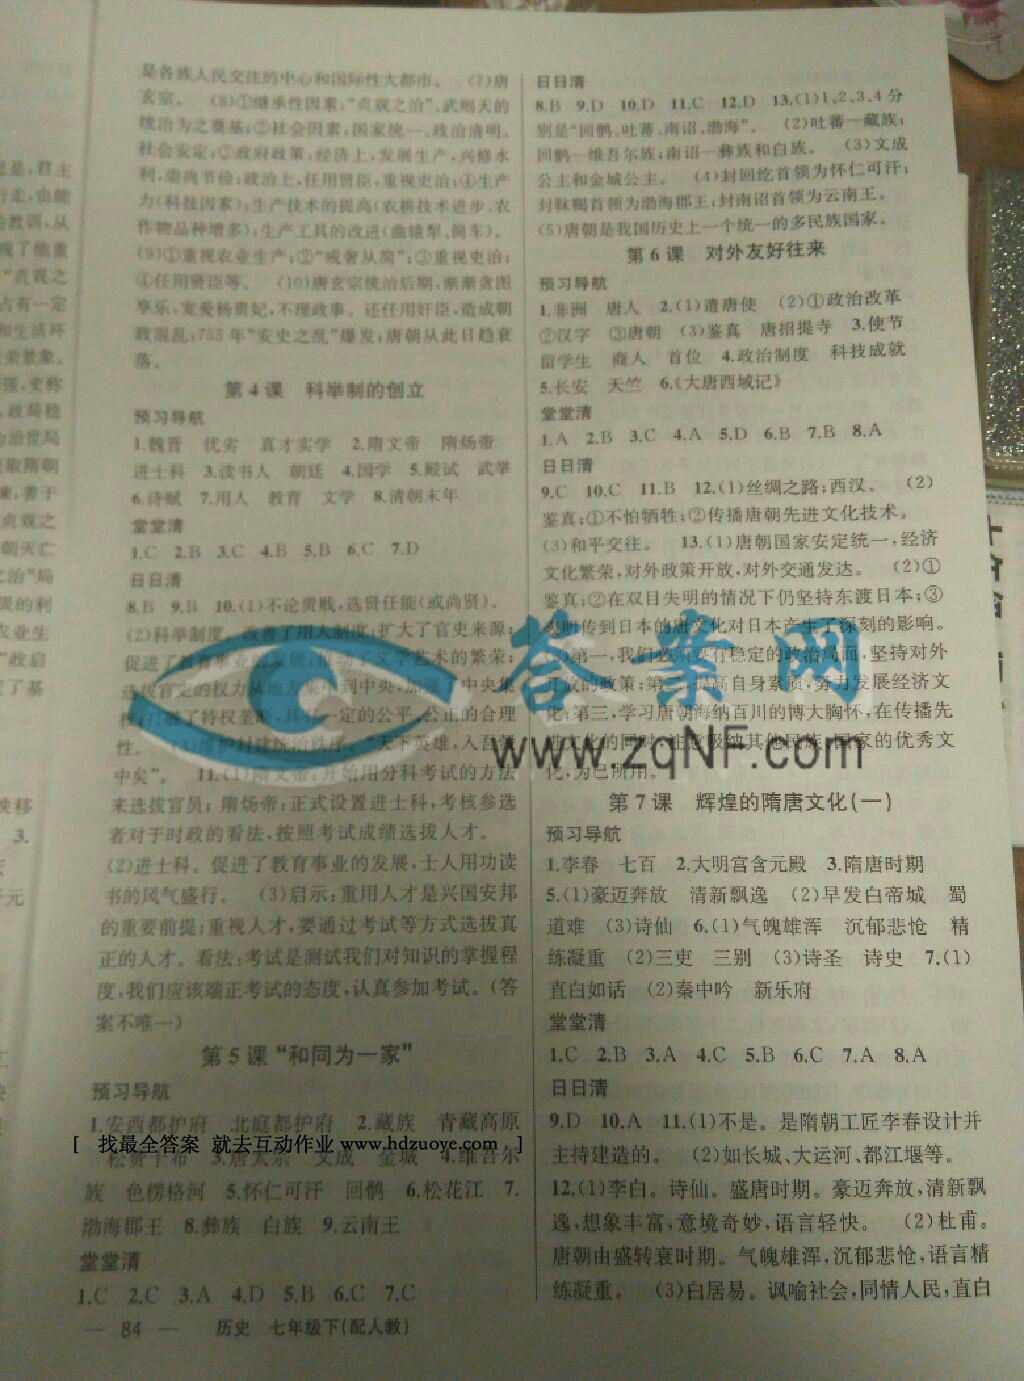 是各族人民交往的中心和国际性大都市。 (7)唐
玄宗。 (8)①继承性因素:“贞观之治”,武则天的
统治为之奠基;②社会因素:国家统一、政治清明、
社会安定;③政府政策:经济上,发展生产,兴修水
利,崇尚节俭;政治上,任用贤臣,重视吏治;④生产
力(科技因素):生产技术的提高(农耕技术进步、农
作物品种增多);生产工具的改进(曲辕犁、筒车)。
(9)①重视农业生产;②“戒奢从简”;③重视吏治;
④任用贤臣等。 (10)唐玄宗统治后期,渐渐贪图
享乐,宠爱杨贵妃,不理政事。还任用奸臣,造成朝
政混乱;755年“安史之乱”爆发;唐朝从此日趋衰
落。
第4课 科举制的创立
预习导航
1.魏晋 优劣 真才实学 2.隋文帝 隋炀帝
进士科 3.读书人 朝廷 4.国学 5.殿试 武举
6.诗赋 7.用人 教育 文学 8.清朝末年
堂堂清
1.C 2.B 3.C 4.B 5.B 6.C 7.D
日日清
8.B 9.B 10.(1)不论贵贱,选贤任能(或尚贤)。
(2)科举制度。改善了用人制度;扩大了官吏来源;
促进了教育事业的发展;推动了文学艺术的繁荣;
选拔官吏的权力从地方集中到中央,加强了中央集
权;打破了特权垄断,具有一定的公平、公正的合理
性。 (3)维护封建统治秩序。“天下英雄,入吾彀
中矣”。 11.(1)隋文帝:开始用分科考试的方法
来选拔官员;隋炀帝:正式设置进士科,考核参选
者对于时政的看法,按照考试成绩选拔人才。
(2)进士科。促进了教育事业的发展,士人用功读
书的风气盛行。 (3)启示:重用人才是兴国安邦
的重要前提;重视人才,要通过考试等方式选拔真
正的人才。看法:考试是测试我们对知识的掌握程
度,我们应该端正考试的态度,认真参加考试。(答
案不唯一)
第5课“和同为一家”
预习导航
1.安西都护府 北庭都护府 2.藏族 青藏高原
[ 找最全答案 就去互动作业 www.hdzuoye.com ]
松赞干布 3.唐太宗 文成 金城 4.维吾尔
族 色楞格河 5.怀仁可汗 回鹘 6.松花江 7.
渤海郡王 8.彝族 白族 9.云南王
堂堂清
1.C 2.C 3.A 4.D 5.B 6.C 7.C
— 84 — 历史 七年级下(配人教)
日日清
8.B 9.D 10.D 11.C 12.D 13.(1)1、2、3、4分
别是“回鹘、吐蕃、南诏、渤海”。 (2)吐蕃—藏族;
回鹘—维吾尔族;南诏—彝族和白族。 (3)文成
公主和金城公主。 (4)封回纥首领为怀仁可汗;
封靺鞨首领为渤海郡王;封南诏首领为云南王。
(5)唐朝是我国历史上一个统一的多民族国家。
第6课 对外友好往来
预习导航
1.非洲 唐人 2.(1)遣唐使 (2)①政治改革
②汉字 ③唐朝 (3)鉴真 唐招提寺 3.使节
留学生 商人 首位 4.政治制度 科技成就
5.长安 天竺 6.《大唐西域记》
堂堂清
1.A 2.B 3.C 4.A 5.D 6.B 7.B 8.A
日日清
9.C 10.C 11.B 12.(1)丝绸之路;西汉。 (2)
鉴真;①不怕牺牲;②传播唐朝先进文化技术。
(3)和平交往。 13.(1)唐朝国家安定统一,经济
文化繁荣,对外政策开放,对外交通发达。 (2)①
鉴真;②在双目失明的情况下仍坚持东渡日本;③
表明传到日本的唐文化对日本产生了深刻的影响。
(3)第一,我们必须要有稳定的政治局面,坚持对外
开放的政策;第二,提高自身素质,努力发展经济文
化;第三,学习唐朝海纳百川的博大胸怀,在传播先
进文化的同时,注意吸纳其他民族、国家的优秀文
化,为己所用。
第7课 辉煌的隋唐文化(一)
预习导航
1.李春 七百 2.大明宫含元殿 3.隋唐时期
5.(1)豪迈奔放 清新飘逸 (2)早发白帝城 蜀
道难 (3)诗仙 6.(1)气魄雄浑 沉郁悲怆 精
练凝重 (2)三吏 三别 (3)诗圣 诗史 7.(1)
直白如话 (2)秦中吟 新乐府
堂堂清
1.C 2.B 3.A 4.C 5.B 6.C 7.A 8.A
日日清
9.D 10.A 11.(1)不是。是隋朝工匠李春设计并
主持建造的。 (2)如长城、大运河、都江堰等。
12.(1)李白。诗仙。盛唐时期。豪迈奔放,清新飘
逸,想象丰富,意境奇妙,语言轻快。 (2)杜甫。
唐朝由盛转衰时期。气魄雄浑,沉郁悲怆,语言精
练凝重。 (3)白居易。讽喻社会,同情人民,直白
答案网
www.zqNF.com